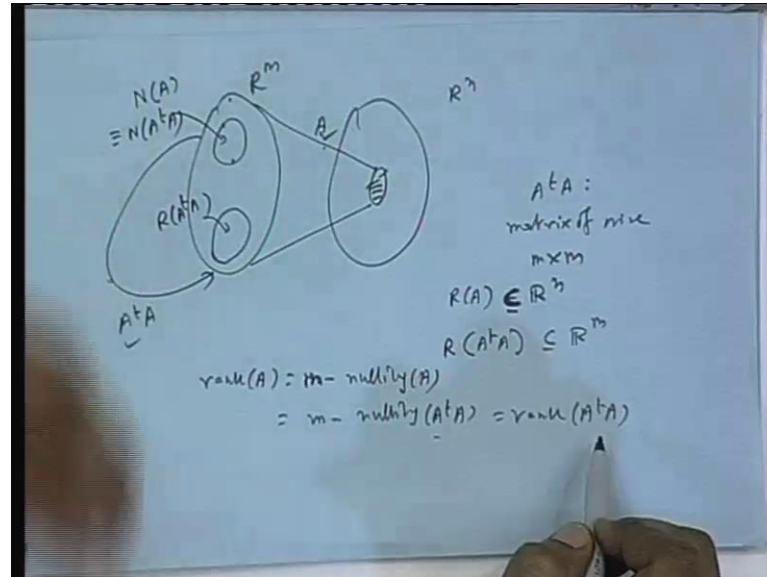 N(A)
≡ N(AᵗA)
Rᵐ
Rⁿ
A
R(AᵗA)
AᵗA
AᵗA :
matrix of size
m×m
R(A) ⊆ ℝⁿ
R(AᵗA) ⊆ ℝᵐ
rank(A) = m - nullity(A)
= m - nullity(AᵗA) = rank(AᵗA)